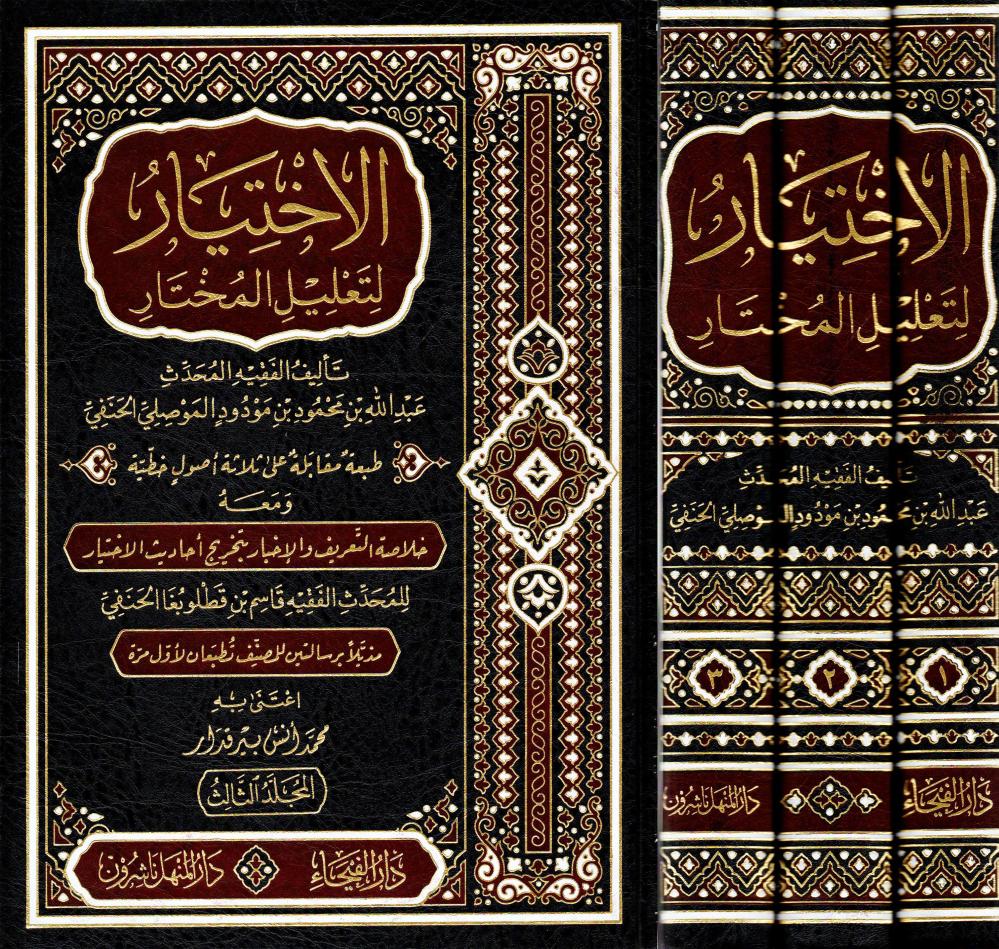 الاخْتِيَارُ
لِتَعْلِيْلِ المُخْتَارِ
تَأليفُ الفَقِيْهِ المُحَدِّثِ
عَبْدِ اللهِ بْنِ مَحْمُودِ بْنِ مَوْدُودٍ المَوْصِلِيِّ الحَنَفِيِّ
طبعة مقابلة على ثلاثة أصول خطّيّة
وَمَعَهُ
خلاصة التّعريف والإخبار بتخريج أحاديث الاختيار
لِلمُحَدِّثِ الفَقِيْهِ قَاسِم بْنِ قُطْلُوبُغَا الحَنَفِيِّ
مذيّلاً برسالتين للمصنّف تُطبَعان لأوّل مرّة
اعْتَنَى بِهِ
محمّد أنس بيرقدار
المُجَلَّدُ الثَّالِثُ
دَارُ الفَيْحَاءِ دَارُ المِنْهَل نَاشِرُوْن
الاخْتِيَارُ
لِتَعْلِيْلِ المُخْتَارِ
تَأليفُ الفَقِيْهِ المُحَدِّثِ
عَبْدِ اللهِ بْنِ مَحْمُودِ بْنِ مَوْدُودٍ المَوْصِلِيِّ الحَنَفِيِّ
١ ٢ ٣
دَارُ الفَيْحَاءِ دَارُ المِنْهَل نَاشِرُوْن